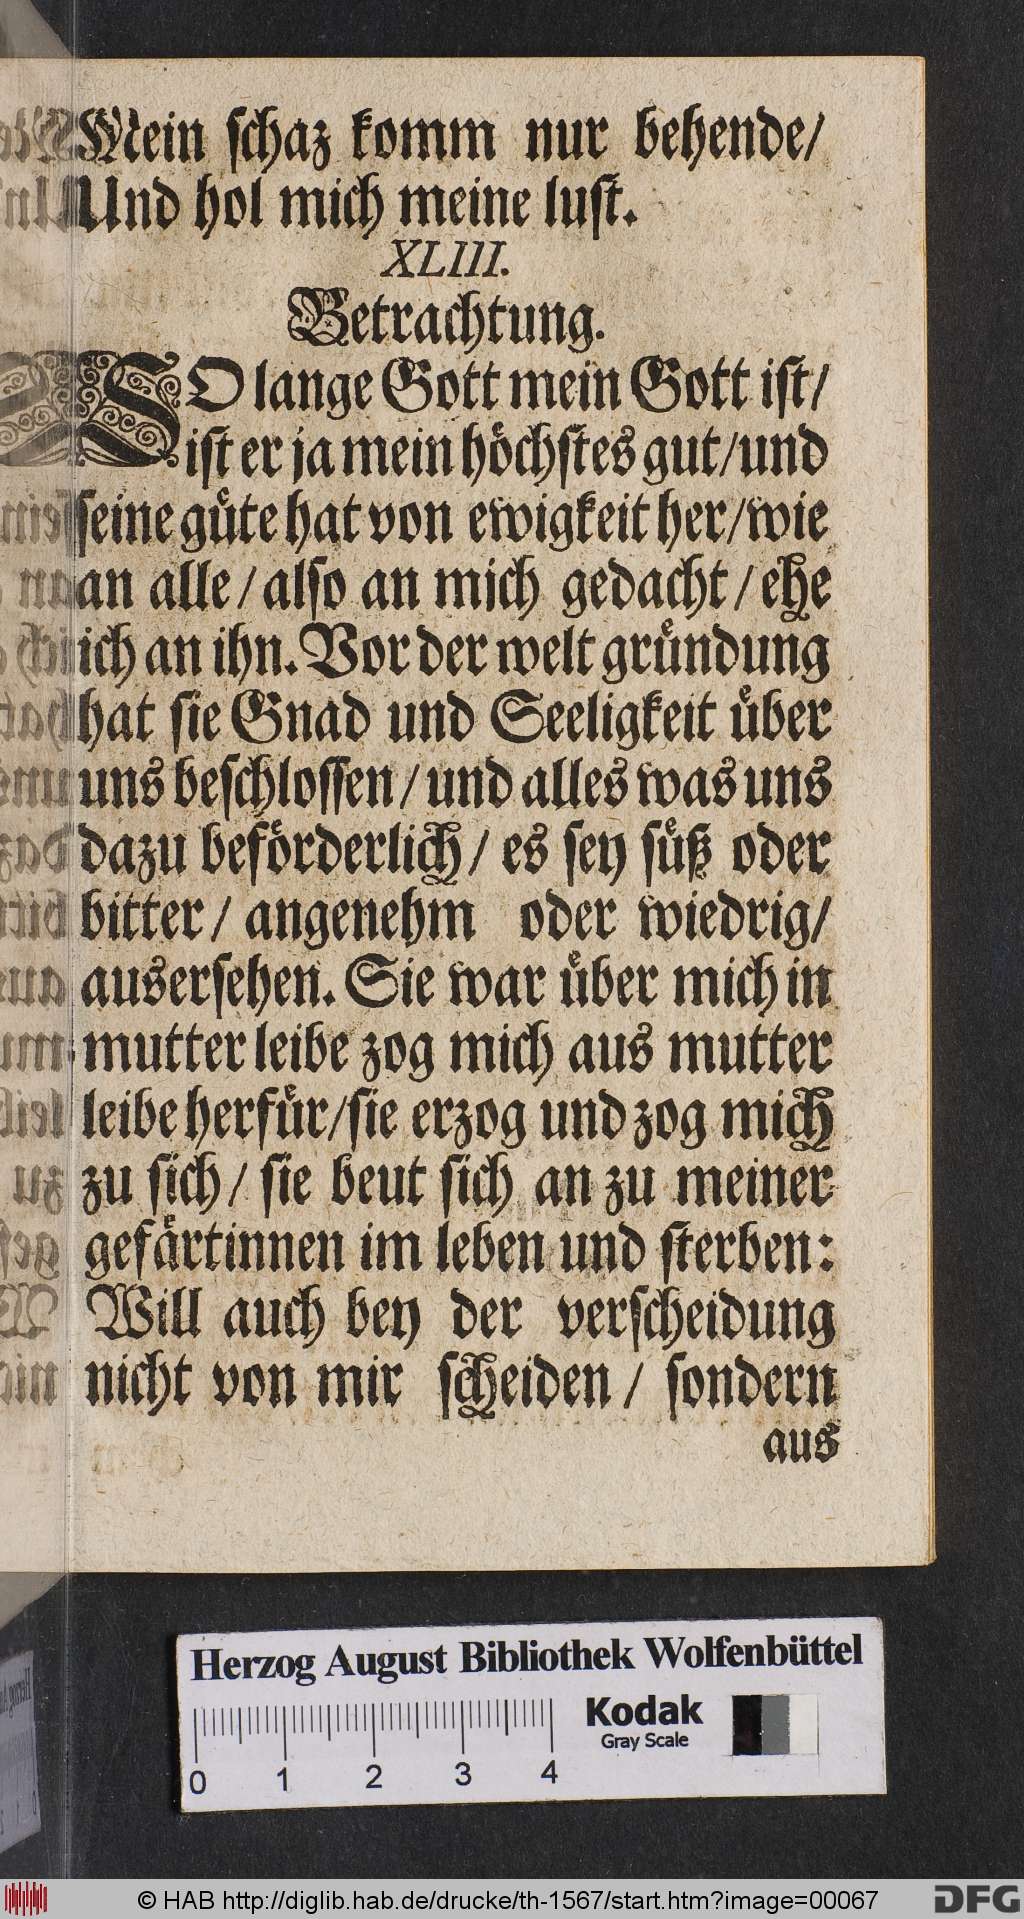 Mein schaz komm nur behende/
Und hol mich meine lust.
XLIII.
Betrachtung.
SO lange Gott mein Gott ist/
ist er ja mein hoͤchstes gut/und
seine guͤte hat von ewigkeit her/wie
an alle/also an mich gedacht/ehe
ich an ihn. Vor der welt gruͤndung
hat sie Gnad und Seeligkeit uͤber
uns beschlossen/und alles was uns
dazu befoͤrderlich/ es sey suͤß oder
bitter/ angenehm oder wiedrig/
ausersehen. Sie war uͤber mich in
mutter leibe zog mich aus mutter
leibe herfuͤr/sie erzog und zog mich
zu sich/ sie beut sich an zu meiner
gefaͤrtinnen im leben und sterben:
Will auch bey der verscheidung
nicht von mir scheiden/ sondern
aus
Herzog August Bibliothek Wolfenbüttel
Kodak
Gray Scale
0 1 2 3 4
© HAB http://diglib.hab.de/drucke/th-1567/start.htm?image=00067
DFG